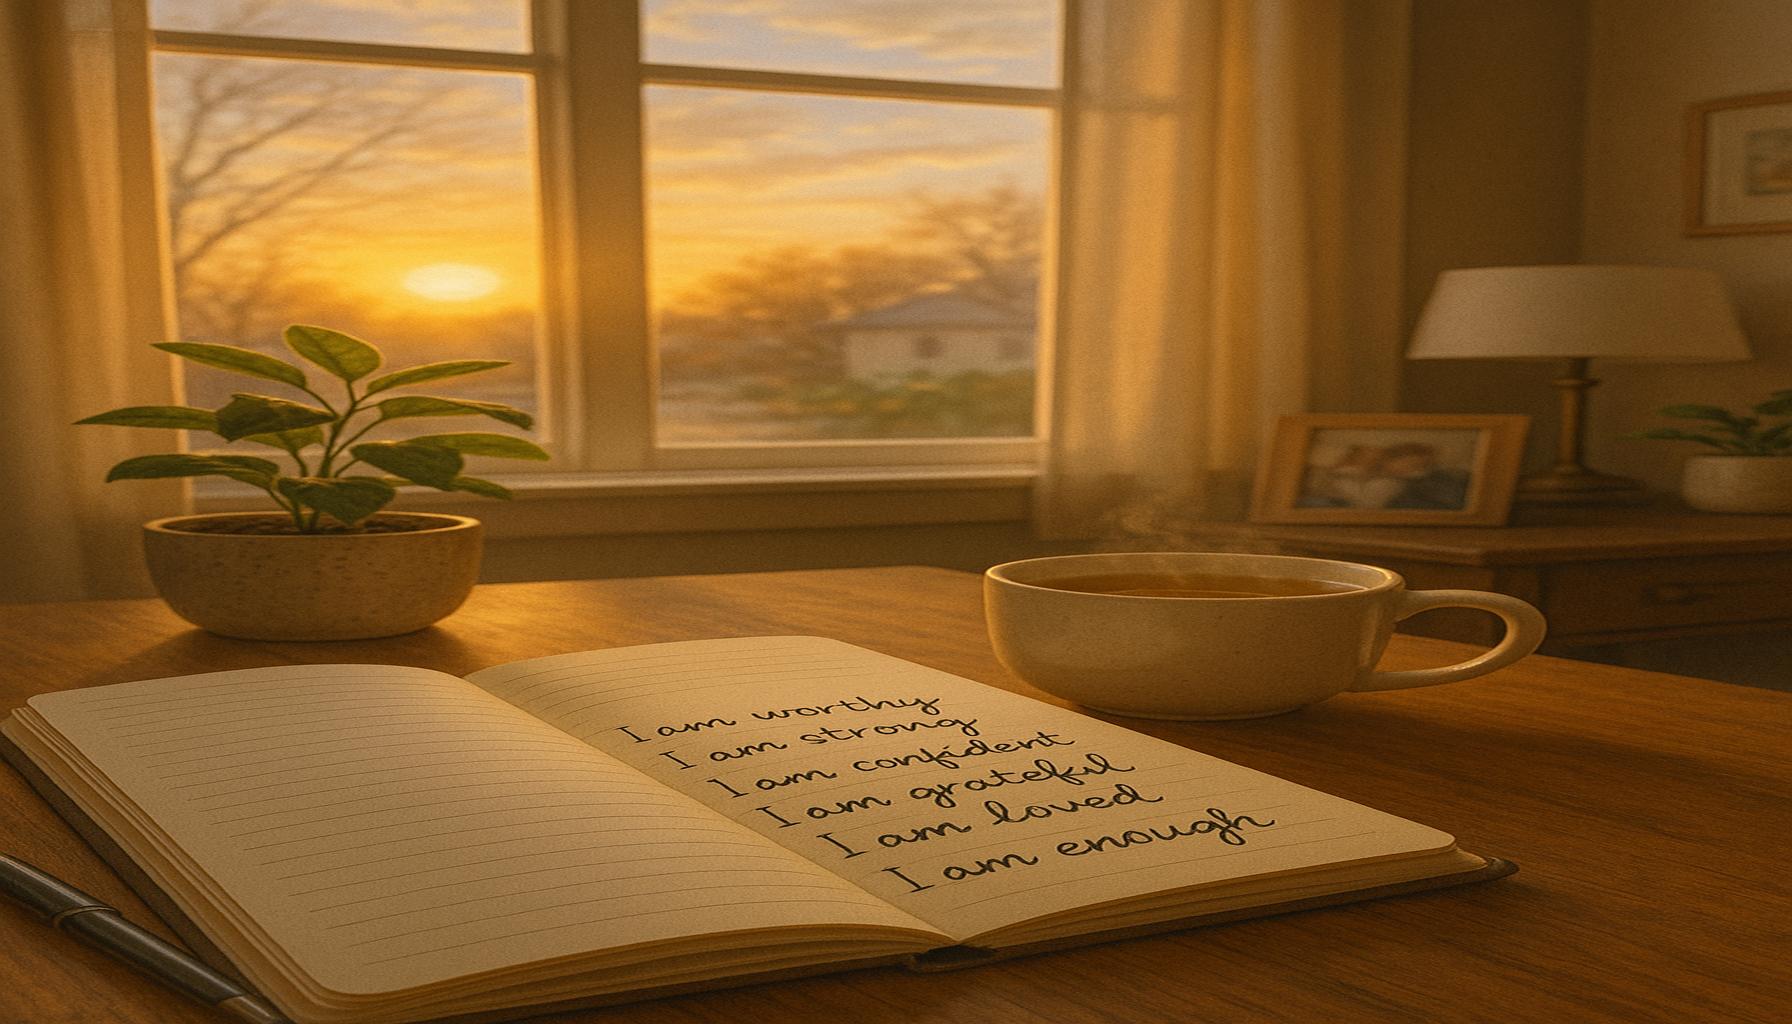 I am worthy
I am strong
I am confident
I am grateful
I am loved
I am enough